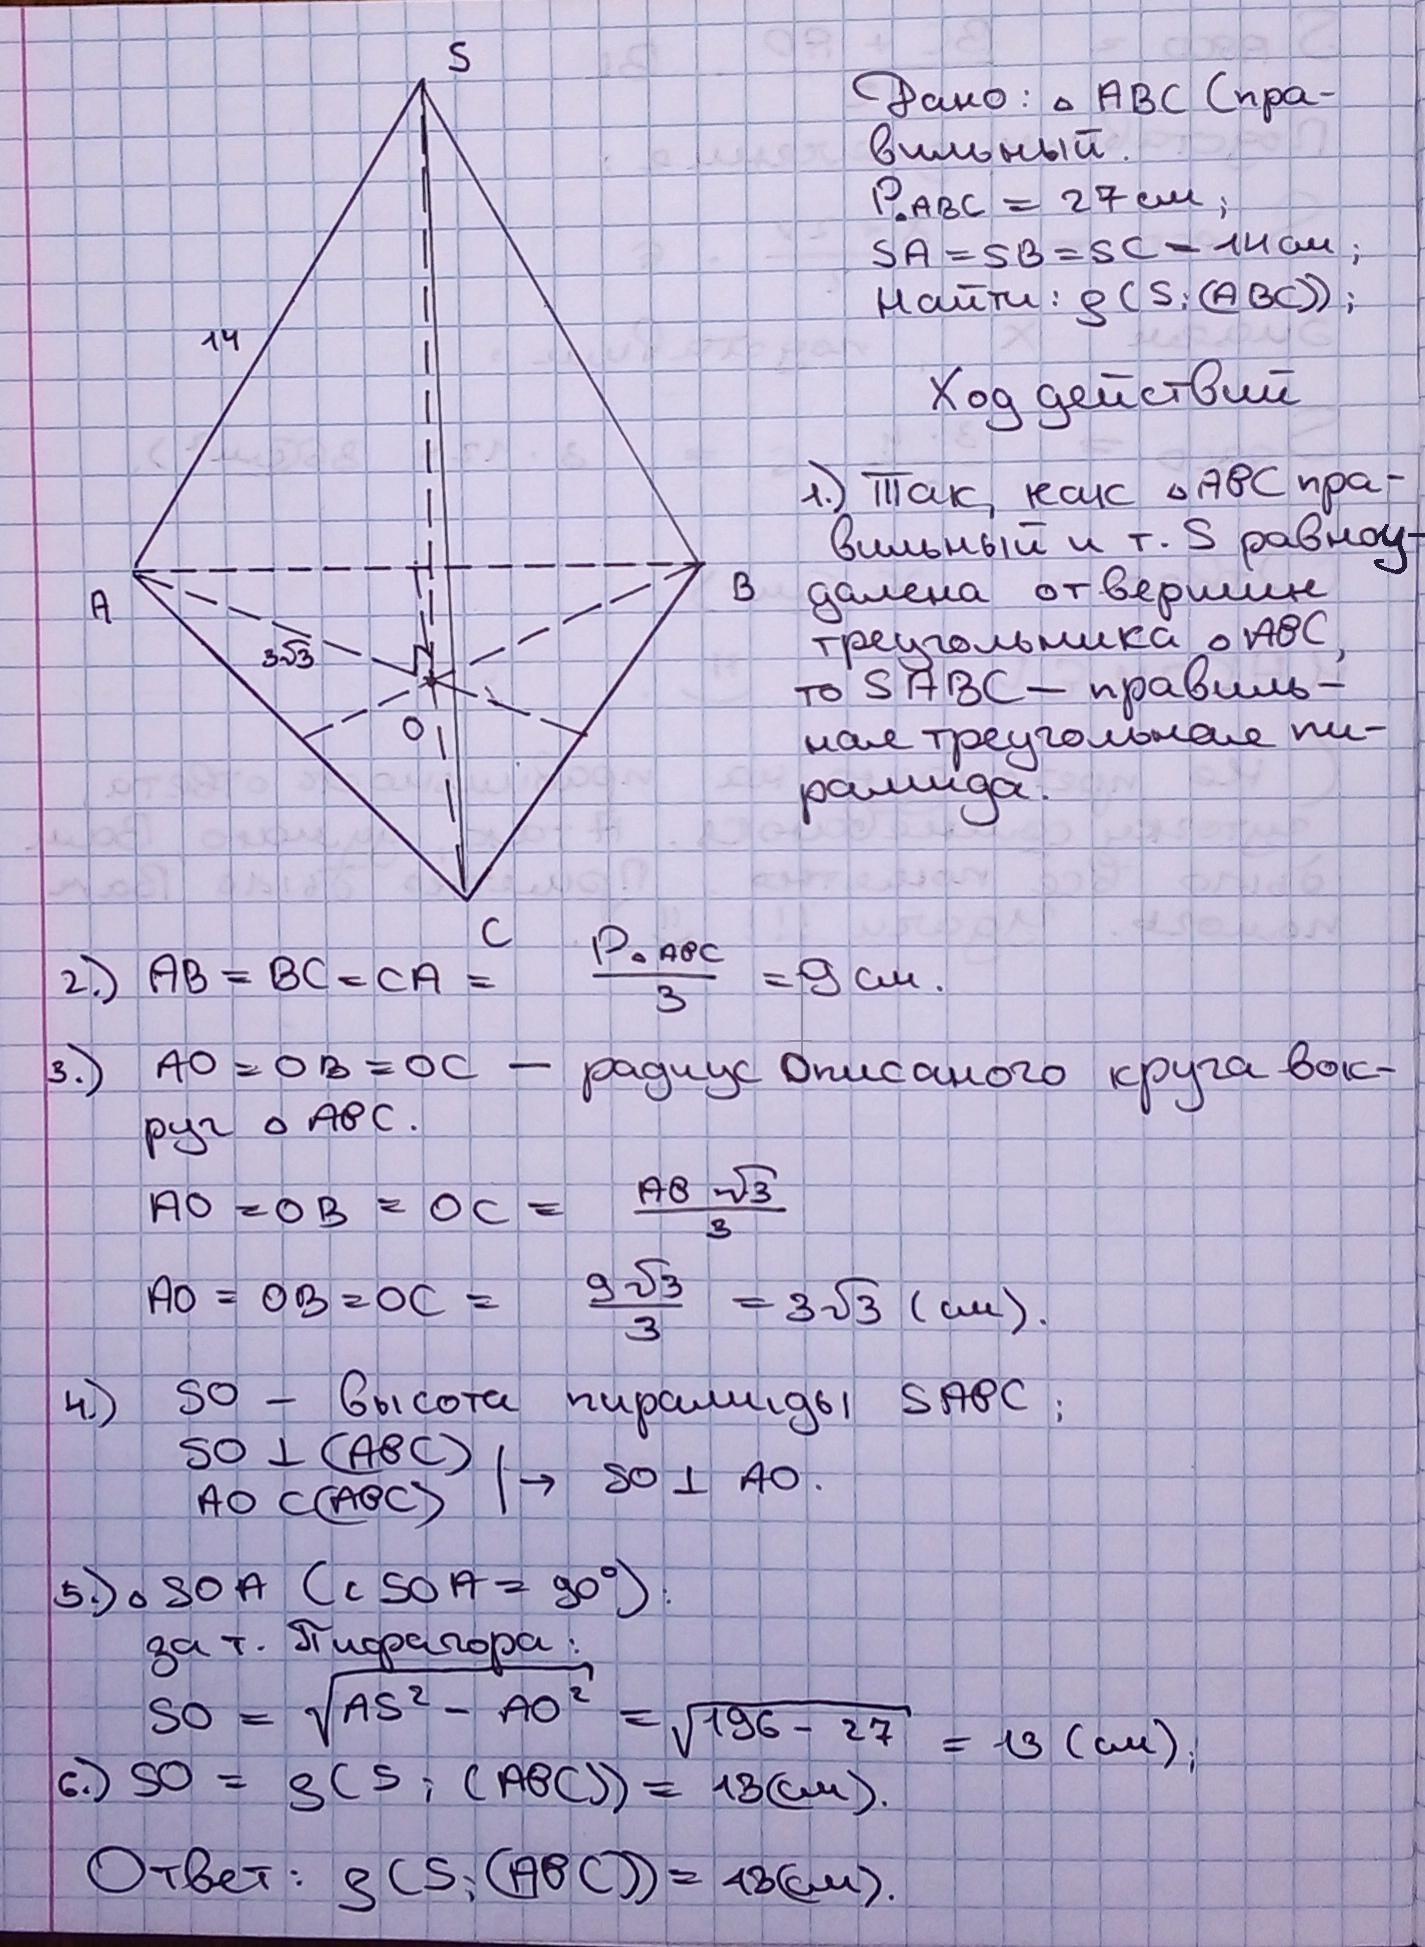 S
Дано: △ ABC (пра-
вильный.
P△ABC = 27 см;
SA = SB = SC = 14 см;
Найти: ρ(S;(ABC));
14
Ход действий
1.) Так, как △ABC пра-
вильный и т. S равноу-
далена от вершин
треугольника △ABC,
то SABC — правиль-
ная треугольная пи-
рамида.
A
B
3√3
O
C
2.) AB = BC = CA = P△ABC/3 = 9 см.
3.) AO = OB = OC — радиус описаного круга вок-
руг △ ABC.
AO = OB = OC = AB √3/3
AO = OB = OC = 9√3/3 = 3√3 (см).
4.) SO — высота пирамиды SABC;
SO ⊥ (ABC)
AO ⊂ (ABC) | → SO ⊥ AO.
5.) △ SOA (∠ SOA = 90°):
за т. Пифагора:
SO = √(AS² − AO²) = √(196 − 27) = 13 (см);
6.) SO = ρ(S; (ABC)) = 13(см).
Ответ: ρ(S;(ABC)) = 13(см).